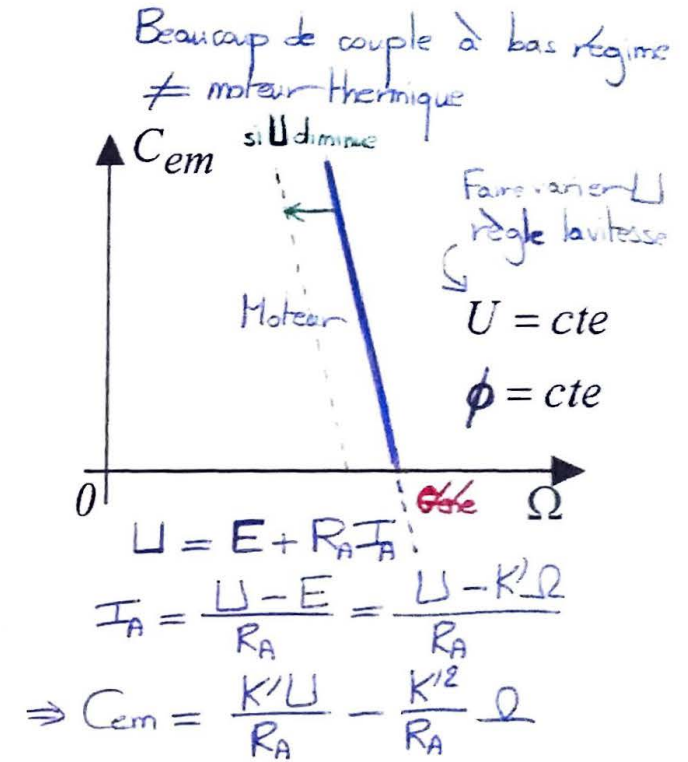 Beaucoup de couple à bas régime
≠ moteur thermique
C_em
si U diminue
Faire varier U
règle la vitesse
Moteur
U = cte
ϕ = cte
0
Ω
U = E + R_A I_A
I_A = (U - E) / R_A = (U - K'Ω) / R_A
⇒ C_em = K'U / R_A - K'² / R_A Ω